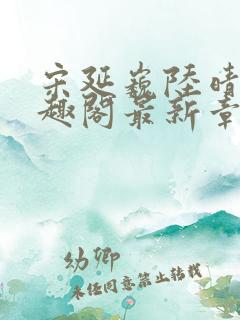 宋延巍陆晴
趣阁最新章
幼卿
未经同意禁止转载